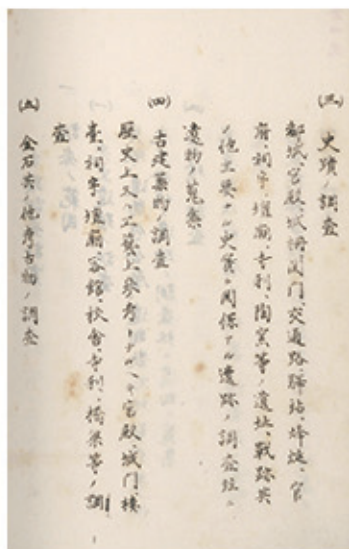 (三) 史蹟ノ調査
都城、宮殿、城柵関門、交通路、驛站、烽燧、官
府、祠宇、壇廟、寺刹、陶窯等ノ遺址、戦跡其
ノ他主要ナル史實ニ関係アル遺跡ノ調査並ニ
遺物ノ蒐集
(四) 古建築物ノ調査
歴史上又ハ工藝上参考トナルヘキ宮殿、城門、樓
臺、祠宇、壇廟、客館、校舎、寺刹、橋梁等ノ調
査
(五) 金石其ノ他考古物ノ調査